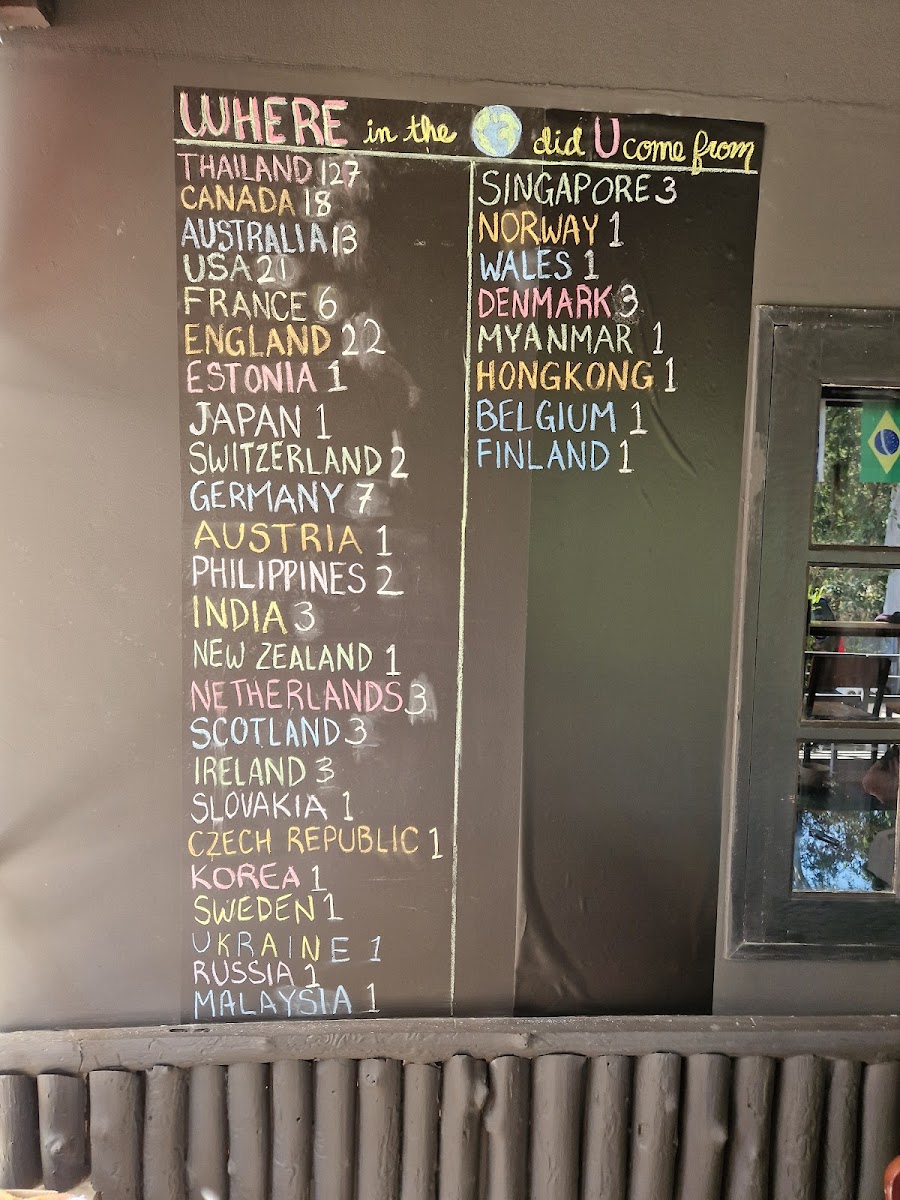 WHERE in the did U come from
THAILAND 127
CANADA 18
AUSTRALIA 13
USA 21
FRANCE 6
ENGLAND 22
ESTONIA 1
JAPAN 1
SWITZERLAND 2
GERMANY 7
AUSTRIA 1
PHILIPPINES 2
INDIA 3
NEW ZEALAND 1
NETHERLANDS 3
SCOTLAND 3
IRELAND 3
SLOVAKIA 1
CZECH REPUBLIC 1
KOREA 1
SWEDEN 1
UKRAINE 1
RUSSIA 1
MALAYSIA 1
SINGAPORE 3
NORWAY 1
WALES 1
DENMARK 3
MYANMAR 1
HONGKONG 1
BELGIUM 1
FINLAND 1